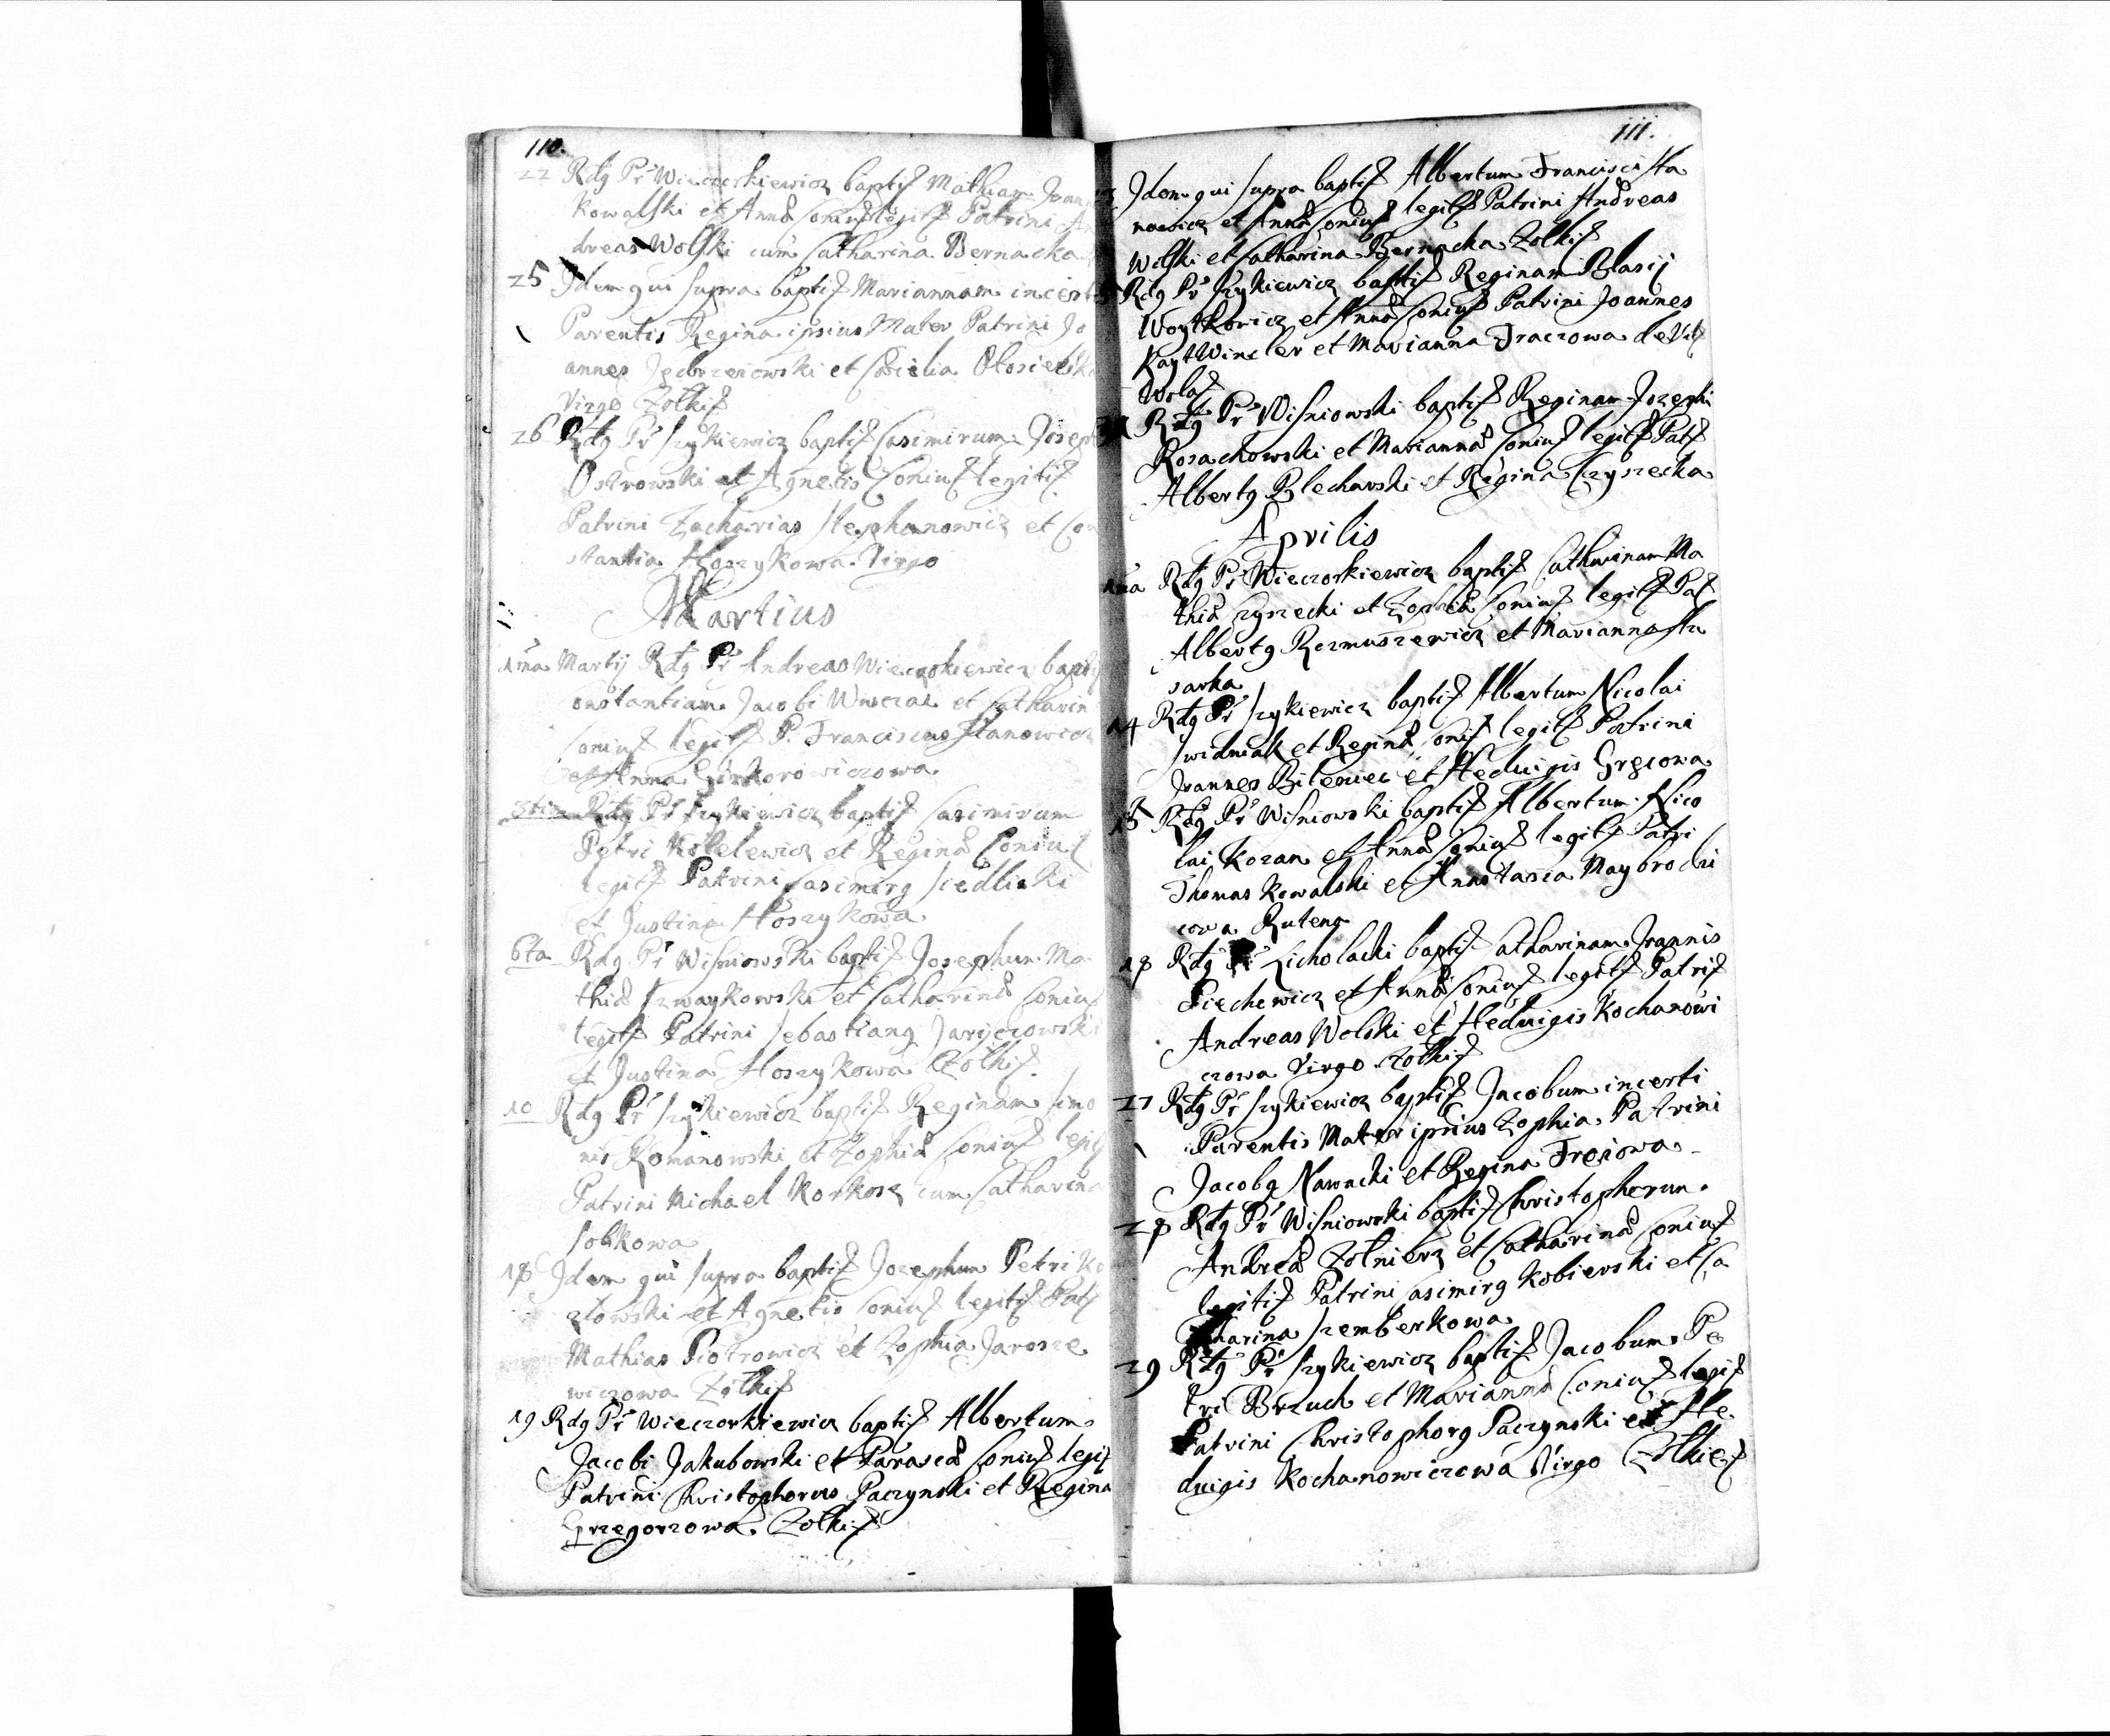 110.
22 Rdg Pr Wieczorkiewicz baptis Mathiam Joan
Kowalski et Anna Coniug legit Patrini An
dreas Wolski cum Catharina Bernacka
25 Idem qui supra baptis Mariannam incerti
Parentis Regina ipsius Mater Patrini Jo
annes Jedrzeiowski et Cecilia
Virgo Zolkis
26 Rdg Pr Szykiewicz baptis Casimirum Joseph
Ostrowski et Agnetis Coniug legitis
Patrini Zacharias Stephanowicz et Con
stantia Hoszykowa Virgo
Martius
1ma Martij Rdg Pr Andreas Wieczorkiewicz baptis
onstantiam Jacobi et Catharin
Coniug legit P. Franciscus Stanowicz
et Anna
3tia Rdg Pr Szykiewicz baptis Casimirum
Petri Kotelewicz et Regina Coniug
legit Patrini Casimirg Siedliski
et Justina Hoszykowa
6ta Rdg Pr Wisniowski baptis Josephum Ma
thia Szwaykowski et Catharina Coniug
legit Patrini Sebastiang Jaryczowski
et Justina Hoszykowa Zolkis
10 Rdg Pr Szykiewicz baptis Reginam Simo
nis Romanowski et Zophia Coniug legit
Patrini Michael Korkosz cum Catharina
Sobkowa
18 Idem qui supra baptis Josephum Petri Ko
zlowski et Agnetis Coniug legitis Patr
Mathias Piotrowicz et Zophia Jarosze
wiczowa Zolkis
19 Rdg Pr Wieczorkiewicz baptis Albertum
Jacobi Jakubowski et Parasca Coniug legit
Patrini Christophorus Paczynski et Regina
Grzegorzowa. Zolkis
111.
Idem qui supra baptis Albertum Francisci Sta
nowicz et Anna Coniug legit Patrini Andreas
Wolski et Catharina Bernacka Zolkis
Rdg Pr Szykiewicz baptis Reginam Blasij
Woytkowicz et Anna Coniug Patrini Joannes
Kaytwincler et Marianna Traczowa de Vil
Wola
Rdg Pr Wisniowski baptis Reginam Josephi
Rosachowski et Marianna Coniug legit Pat
Albertg Blecharski et Regina Czyszecka
Aprilis
1ma Rdg Pr Wieczorkiewicz baptis Catharinam Ma
thia Czyszecki et Zophia Coniug legit Pat
Albertg Rozmuszewicz et Marianna Slu
sarka
14 Rdg Pr Szykiewicz baptis Albertum Nicolai
Swidniak et Regina Coniug legit Patrini
Joannes et Hedwigis
15 Rdg Pr Wisniowski baptis Albertum Nico
lai Kozan et Anna Coniug legit Patri
Thomas Kowalski et Anastasia Maybrodzi
cowa Rutena
18 Rdg Pr Licholacki baptis Catharinam Joannis
Piechewicz et Anna Coniug legit Patris
Andreas Wolski et Hedwigis Kochanowi
czowa Virgo Zolkis
27 Rdg Pr Szykiewicz baptis Jacobum incerti
Parentis Mater ipsius Zophia. Patrini
Jacobg Nawacki et Regina
28 Rdg Pr Wisniowski baptis Christopherum
Andrea Zolnierz et Catharina Coniug
legitis Patrini Casimirg Kobierski et Ca
tharina Szemberkowa
29 Rdg Pr Szykiewicz baptis Jacobum Pe
tri Brzuch et Marianna Coniug legit
Patrini Christophorg Paczynski et He
dwigis Kochanowiczowa Virgo Zolkies